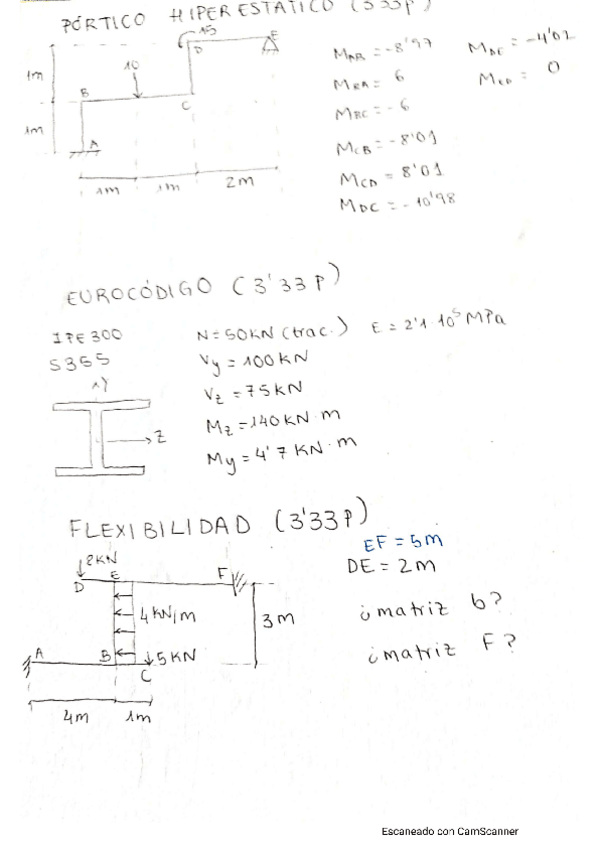 PÓRTICO HIPERESTÁTICO (3'33p)
15
D
E
1m
10
B
C
1m
A
1m 1m 2m
M_AB = -8'97
M_BA = 6
M_BC = -6
M_CB = -8'01
M_CD = 8'01
M_DC = -10'98
M_DE = -4'02
M_ED = 0
EUROCÓDIGO (3'33P)
IPE300
S355
Y
Z
N = 50KN (trac.)
Vy = 100KN
Vz = 75KN
Mz = 140KN·m
My = 4'7 KN·m
E = 2'1 10⁵ MPa
FLEXIBILIDAD (3'33P)
2KN
D E F
4KN/m
3m
A B 5KN
C
4m 1m
EF = 5m
DE = 2m
¿matriz b?
¿matriz F?
Escaneado con CamScanner